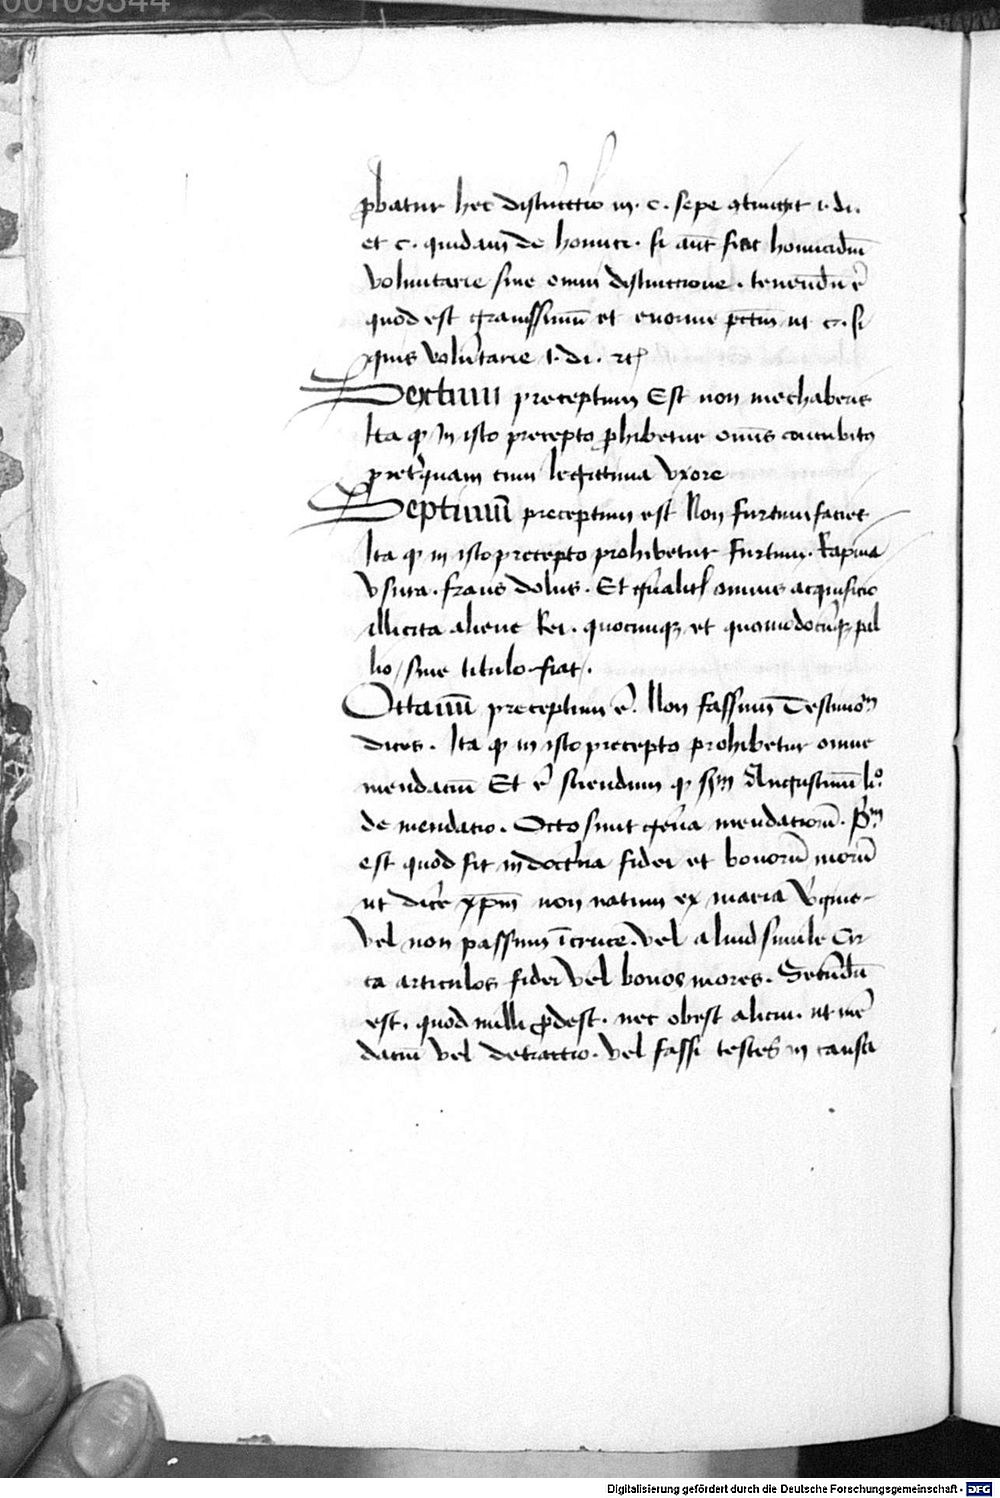 00109344
ꝓbatur hec distinctio in. c. sepe ꝯtingit l. di.
et c. quidam de homici. si aūt fiat homicidiū
voluntarie sine omni distinctione. tenendū ē
quod est grauissimū et enorme pctm̄ ut c. si
quis volūtarie l. di. ⁊cͭ
Sextum preceptum Est non mechaberis
Ita ꝙ In isto precepto ꝓhibetur omīs concubitꝰ
preterquam cum legittima vxore
Septimū preceptum est Non furtum facies
Ita ꝙ in isto precepto prohibetur furtum. Rapina
vsura. fraus dolus. Et gn̄alitr̄ omnis acquisicio
illicita aliene Rei. quocunqꝫ et quomodocūqꝫ
sine titulo fiat.
Octauū preceptum ē. Non falsum Testimoīm
dices. Ita ꝙ in isto precepto prohibetur omne
mendaciū Et ē sciendum ꝙ scd̄m Augustinū liº
de mendacio. Octo sunt gn̄a mendaciorū. pͫ
est quod fit in doctrīa fidei et bonorū morū
ut dicere xp̄m non natum ex maria v̄gine
Vel non passum ī cruce. vel aliud simile Cir
ca articulos fidei vel bonos mores. Secundū
est. quod nulli ꝓdest. nec obest alicui. ut mē
daciū vel detractio. vel falsi testes in causa
Digitalisierung gefördert durch die Deutsche Forschungsgemeinschaft - DFG